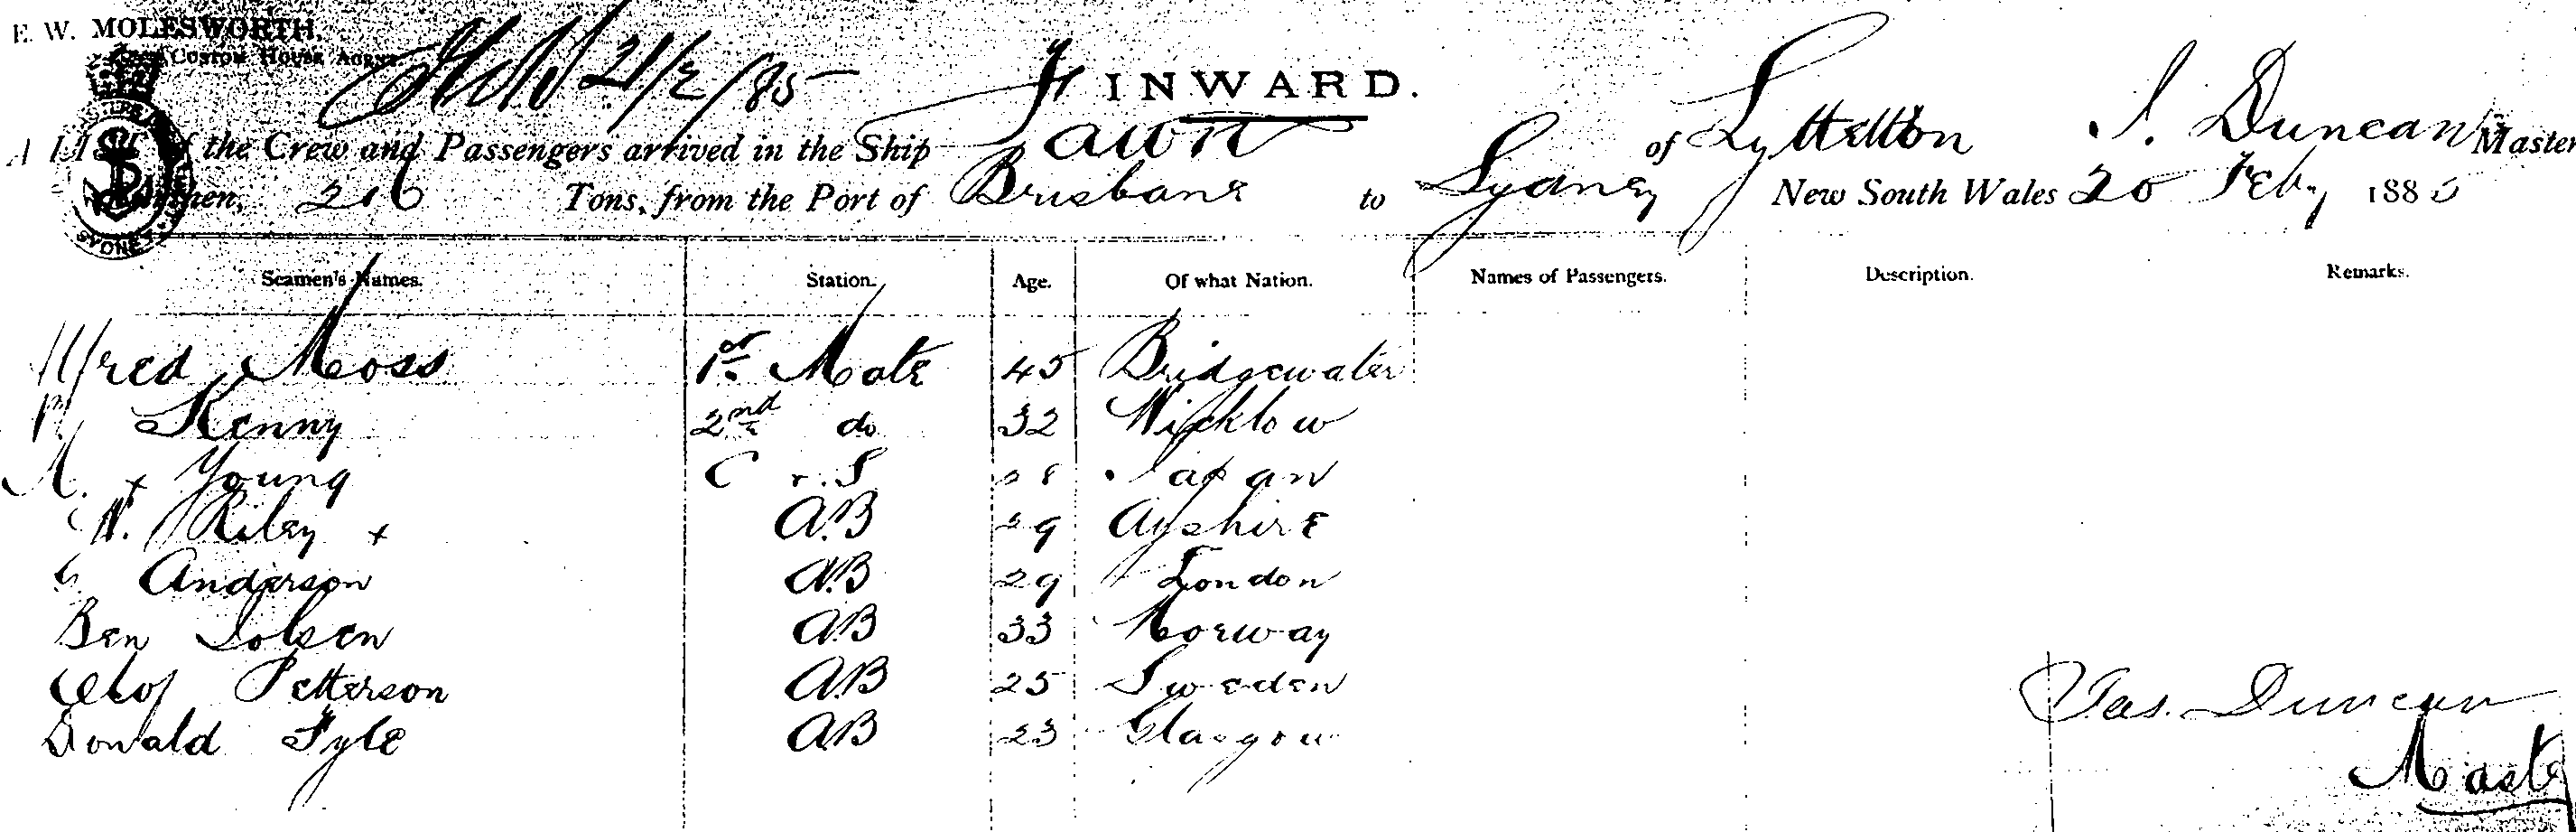 E. W. MOLESWORTH,
Custom House Agent
21/2/85
INWARD.
A LIST of the Crew and Passengers arrived in the Ship Fawn of Lyttelton J. Duncan Master
216 Tons, from the Port of Brisbane to Sydney New South Wales 20 Feby 1885
SYDNEY
Seamen's Names. Station. Age. Of what Nation. Names of Passengers. Description. Remarks.
Alfred Moss 1st Mate 45 Bridgewater
P. Kenny 2nd do 32 Wicklow
A. x Young C & S Japan
W. Riley x A.B 29 Ayshire
Anderson A.B 29 London
Ben Tolsen A.B 33 Norway
Olof Petterson A.B 25 Sweden
Donald Fyle A.B 23 Glasgow
Jas. Duncan
Master